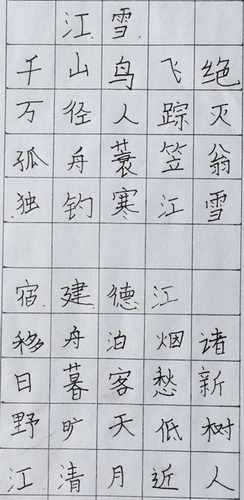 江雪
千山鸟飞绝
万径人踪灭
孤舟蓑笠翁
独钓寒江雪
宿建德江
移舟泊烟诸
日暮客愁新
野旷天低树
江清月近人